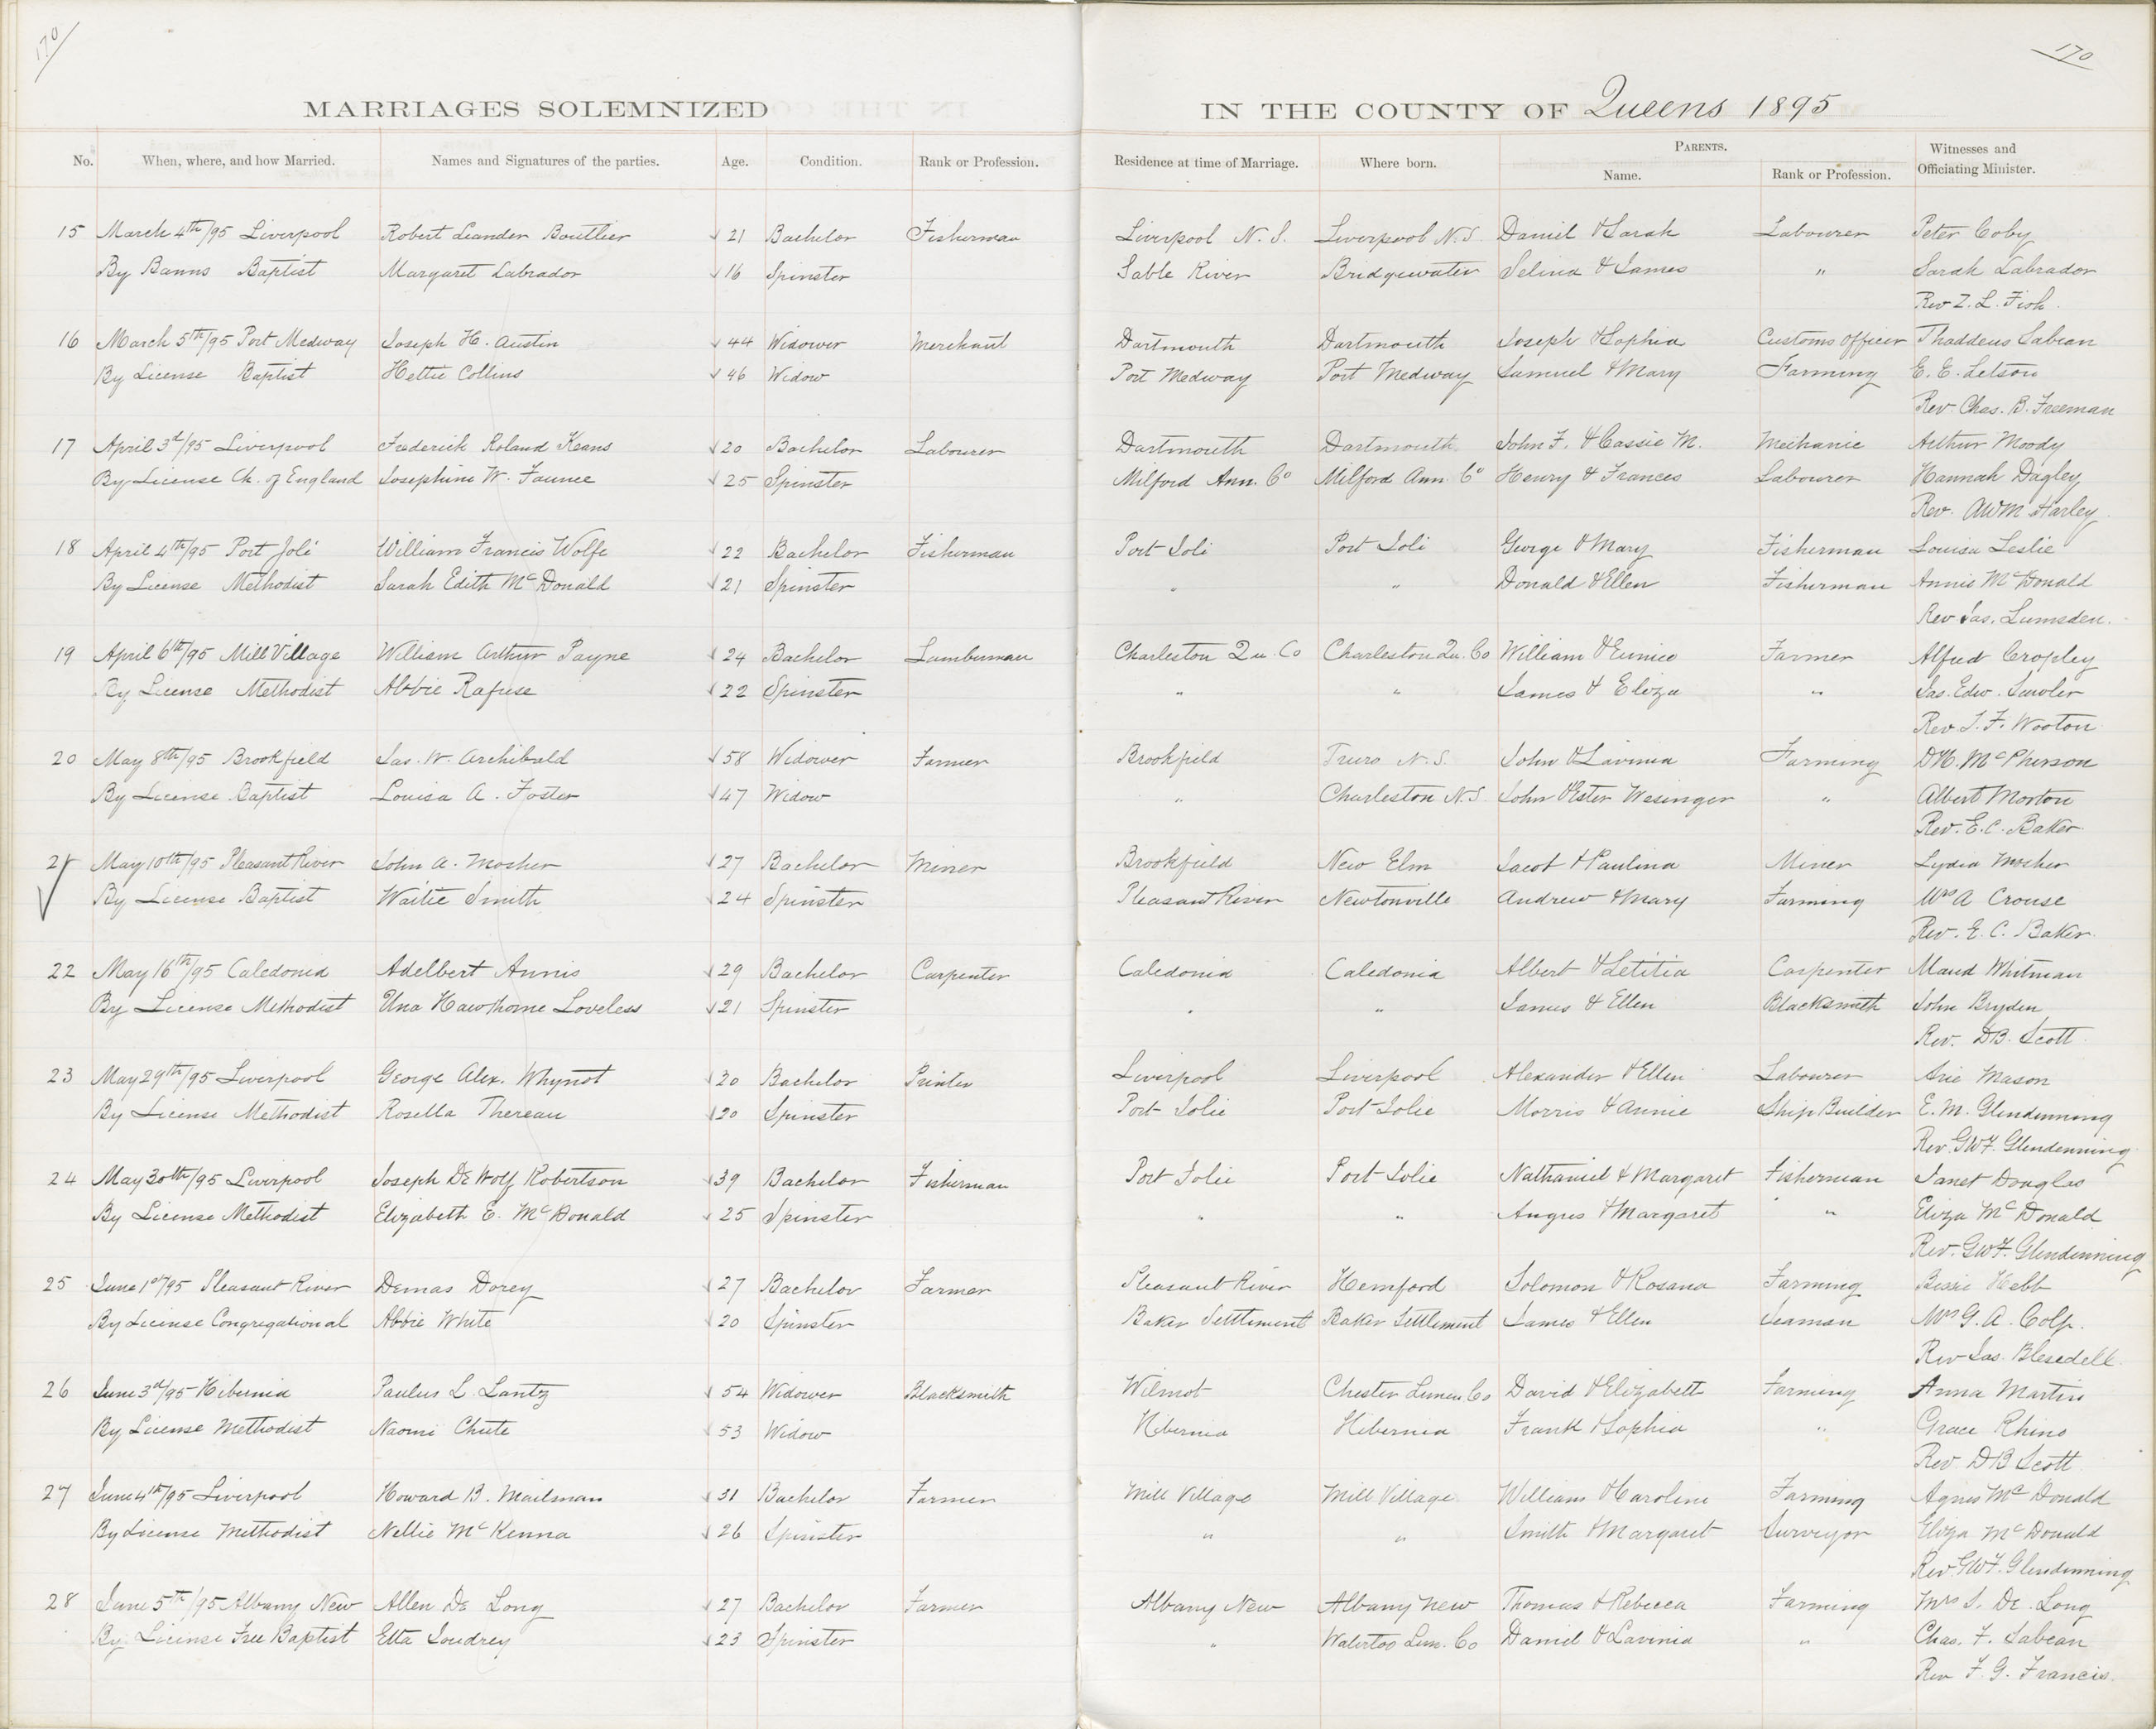 170
170
MARRIAGES SOLEMNIZED IN THE COUNTY OF Queens 1895
No. When, where, and how Married. Names and Signatures of the parties. Age. Condition. Rank or Profession. Residence at time of Marriage. Where born. PARENTS. Name. Rank or Profession. Witnesses and Officiating Minister.
15 March 4th/95 Liverpool Robert Leander Boutlier 21 Bachelor Fisherman Liverpool N.S. Liverpool N.S. Daniel & Sarah Labourer Peter Coby
By Banns Baptist Margaret Labrador 16 Spinster Sable River Bridgewater Selina & James " Sarah Labrador
Rev Z. L. Fish.
16 March 5th/95 Port Medway Joseph H. Austin 44 Widower Merchant Dartmouth Dartmouth Joseph & Sophia Customs Officer Thaddeus Sabean
By License Baptist Hettie Collins 46 Widow Port Medway Port Medway Samuel & Mary Farming E. E. Letson
Rev. Chas. B. Freeman
17 April 3d/95 Liverpool Frederick Roland Keans 20 Bachelor Labourer Dartmouth Dartmouth John F. & Cassie M. Mechanic Arthur Moody
By License Ch. of England Josephine W. Faunce 25 Spinster Milford Ann. Co Milford Ann. Co Henry & Frances Labourer Hannah Dagley
Rev. AWM Harley.
18 April 4th/95 Port Joli William Francis Wolfe 22 Bachelor Fisherman Port Joli Port Joli George & Mary Fisherman Louisa Leslie
By License Methodist Sarah Edith McDonald 21 Spinster " " Donald & Ellen Fisherman Annie McDonald
Rev Jas. Lumsden.
19 April 6th/95 Mill Village William Arthur Payne 24 Bachelor Lumberman Charleston Qu. Co Charleston Qu. Co William & Eunice Farmer Alfred Cropley
By License Methodist Abbie Rafuse 22 Spinster " " James & Eliza " Jas. Edw.
Rev J. F. Wooton
20 May 8th/95 Brookfield Jas. W. Archibald 58 Widower Farmer Brookfield Truro N.S. John & Lavinia Farming McPherson
By License Baptist Louisa A. Foster 47 Widow " Charleston N.S. John & Ester Wesinger " Albert Morton
Rev. E. C. Baker.
21 May 10th/95 Pleasant River John A. Mosher 27 Bachelor Miner Brookfield New Elm Jacob & Paulina Miner Lydia Mosher
By License Baptist Waitie Smith 24 Spinster Pleasant River Newtonville Andrew & Mary Farming Mrs A Crouse
Rev. E. C. Baker.
22 May 16th/95 Caledonia Adelbert Annis 29 Bachelor Carpenter Caledonia Caledonia Albert & Letitia Carpenter Maud Whitman
By License Methodist Una Hawthorne Loveless 21 Spinster " " James & Ellen Blacksmith John Bryden
Rev. DB. Scott.
23 May 29th/95 Liverpool George Alex. Whynot 20 Bachelor Printer Liverpool Liverpool Alexander & Ellen Labourer Arie Mason
By License Methodist Rosella Thereau 20 Spinster Port Jolie Port Jolie Morris & Annie Ship Builder E. M. Glendenning
Rev. GWF. Glendenning
24 May 30th/95 Liverpool Joseph De Wolf Robertson 39 Bachelor Fisherman Port Jolie Port Jolie Nathaniel & Margaret Fisherman Janet Douglas
By License Methodist Elizabeth E. McDonald 25 Spinster " " Angus & Margaret " Eliza McDonald
Rev. GWF. Glendenning
25 June 1st/95 Pleasant River Demas Dorey 27 Bachelor Farmer Pleasant River Hemford Solomon & Rosana Farming Bessie Hebb
By License Congregational Abbie White 20 Spinster Baker Settlement Baker Settlement James & Ellen Seaman Mrs G. A. Colp.
Rev Jas. Blesedell
26 June 3d/95 Hibernia Paulus L. Lantz 54 Widower Blacksmith Wilmot Chester Lunen. Co David & Elizabeth Farming Anna Martin
By License Methodist Naomi Chute 53 Widow Hibernia Hibernia Frank & Sophia " Grace Rhino
Rev. DB Scott
27 June 4th/95 Liverpool Howard B. Mailman 31 Bachelor Farmer Mill Village Mill Village William & Caroline Farming Agnes McDonald
By License Methodist Nellie McKenna 26 Spinster " " Smith & Margaret Surveyor Eliza McDonald
Rev. GWF. Glendenning
28 June 5th/95 Albany New Allen De Long 27 Bachelor Farmer Albany New Albany New Thomas & Rebecca Farming Mrs S. De Long
By License Free Baptist Etta Joudrey 23 Spinster " Waterloo Lun. Co Daniel & Lavinia " Chas. F. Sabean
Rev F. G. Francis.